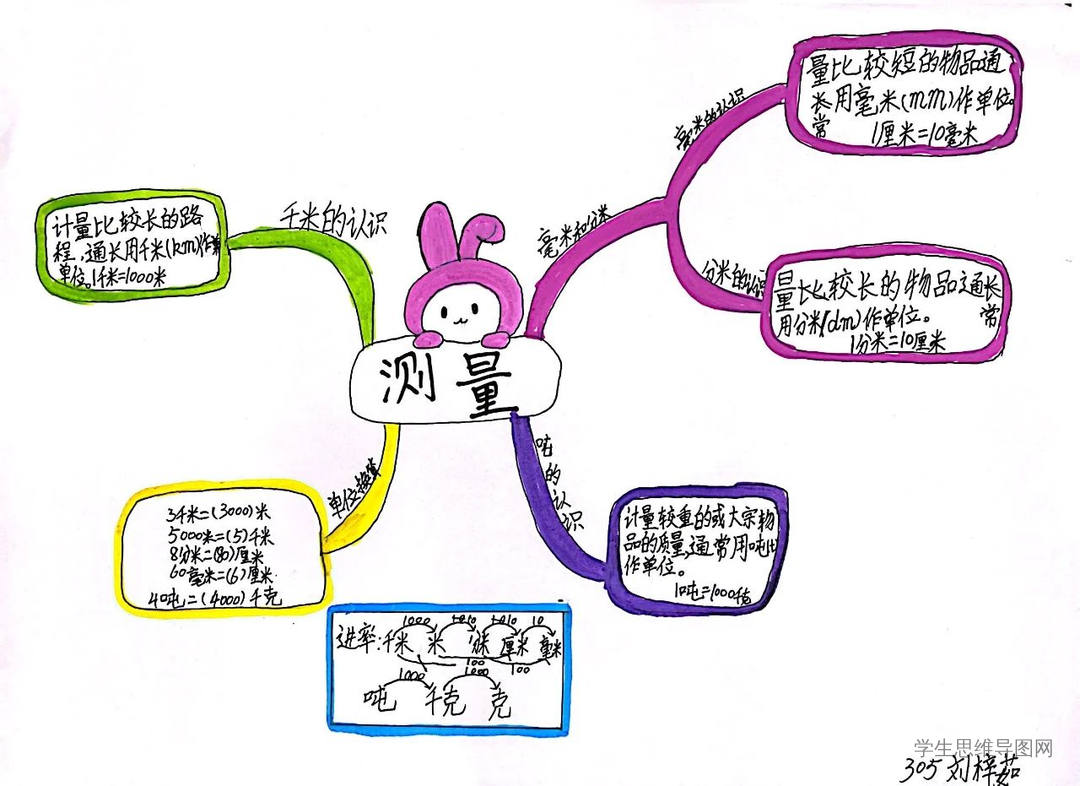 测量
千米的认识
计量比较长的路
程,通长用千米(km)作单
单位。1千米=1000米
毫米和分米
毫米的认识
量比较短的物品通
长用毫米(mm)作单位。
常
1厘米=10毫米
分米的认识
量比较长的物品通长
用分米(dm)作单位。 常
1分米=10厘米
吨的认识
计量较重的或大宗物
品的质量,通常用吨
作单位。
1吨=1000千克
单位换算
3千米=(3000)米
5000米=(5)千米
8分米=(80)厘米
60毫米=(6)厘米
4吨=(4000)千克
1000 10 10 10
进率:千米 米 分米 厘米 毫米
100 100
1000 1000
吨 千克 克
学生思维导图网
305 刘梓茹